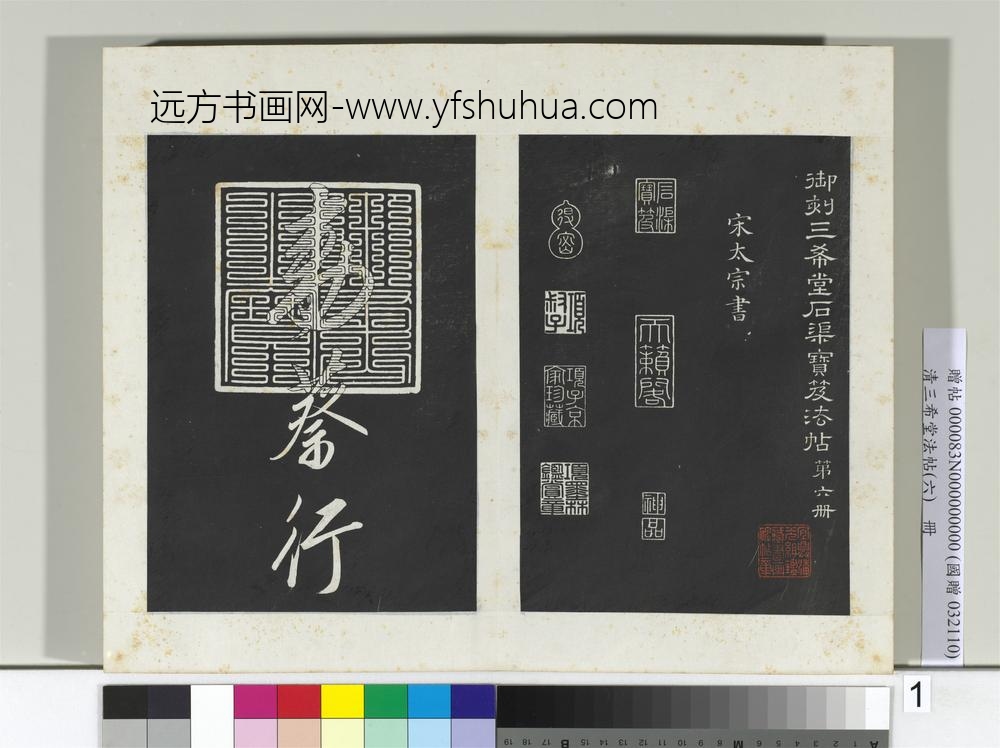 远方书画网-www.yfshuhua.com
御刻三希堂石渠寶笈法帖第六册
宋太宗書
石渠寶笈
天籟閣
神品
得密
項叔子
項子京家珍藏
項墨林鑑賞章
蔡行
贈帖 000083N000000000 (國贈 032110)
清三希堂法帖(六) 冊
1